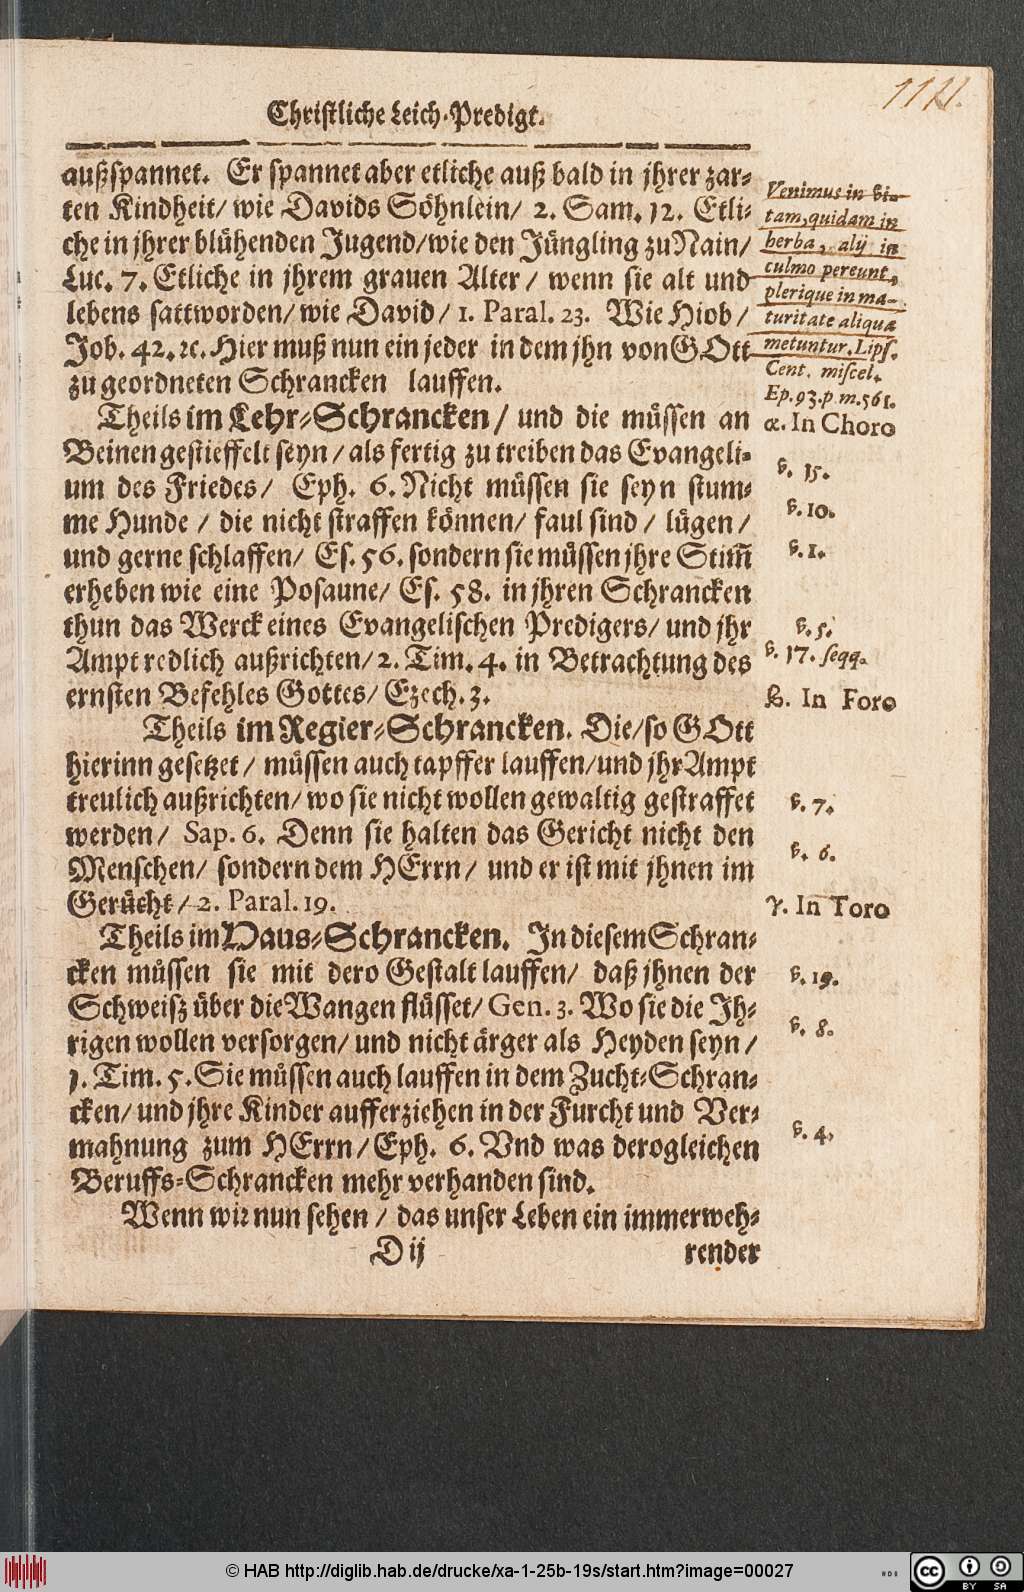 Christliche Leich-Predigt.
außspannet. Er spannet aber etliche auß bald in jhrer zar-
ten Kindheit/ wie Davids Söhnlein/ 2. Sam. 12. Etli-
che in jhrer blühenden Jugend/ wie den Jüngling zu Nain/
Luc. 7. Etliche in jhrem grauen Alter / wenn sie alt und
lebens satt worden/ wie David / 1. Paral. 23. Wie Hiob /
Job. 42. ꝛc. Hier muß nun ein jeder in dem jhn von GOtt
zu geordneten Schrancken lauffen.
Theils im Lehr-Schrancken / und die müssen an
Beinen gestieffelt seyn / als fertig zu treiben das Evangeli-
um des Friedes/ Eph. 6. Nicht müssen sie seyn stum-
me Hunde / die nicht straffen können/ faul sind / lügen /
und gerne schlaffen/ Es. 56. sondern sie müssen jhre Stim̃
erheben wie eine Posaune/ Es. 58. in jhren Schrancken
thun das Werck eines Evangelischen Predigers/ und jhr
Ampt redlich außrichten/ 2. Tim. 4. in Betrachtung des
ernsten Befehles Gottes/ Ezech. 3.
Theils im Regier-Schrancken. Die/ so GOtt
hierinn gesetzet / müssen auch tapffer lauffen/ und jhr Ampt
treulich außrichten/ wo sie nicht wollen gewaltig gestraffet
werden/ Sap. 6. Denn sie halten das Gericht nicht den
Menschen/ sondern dem HErrn/ und er ist mit jhnen im
Gerücht / 2. Paral. 19.
Theils im Haus-Schrancken. In diesem Schran-
cken müssen sie mit dero Gestalt lauffen/ daß jhnen der
Schweisz über die Wangen flüsset/ Gen. 3. Wo sie die Ih-
rigen wollen versorgen/ und nicht ärger als Heyden seyn /
1. Tim. 5. Sie müssen auch lauffen in dem Zucht-Schran-
cken/ und jhre Kinder aufferziehen in der Furcht und Ver-
mahnung zum HErrn/ Eph. 6. Vnd was derogleichen
Beruffs-Schrancken mehr verhanden sind.
Wenn wir nun sehen / das unser Leben ein immerweh-
D ij
render
Venimus in vi-
tam, quidam in
herba, alij in
culmo pereunt,
plerique in ma-
turitate aliqua
metuntur. Lips.
Cent. miscel.
Ep. 93. p. m. 561.
α. In Choro
v. 15.
v. 10.
v. 1.
v. 5.
v. 17. seqq.
β. In Foro
v. 7.
v. 6.
γ. In Toro
v. 19.
v. 8.
v. 4.
© HAB http://diglib.hab.de/drucke/xa-1-25b-19s/start.htm?image=00027
cc
BY SA